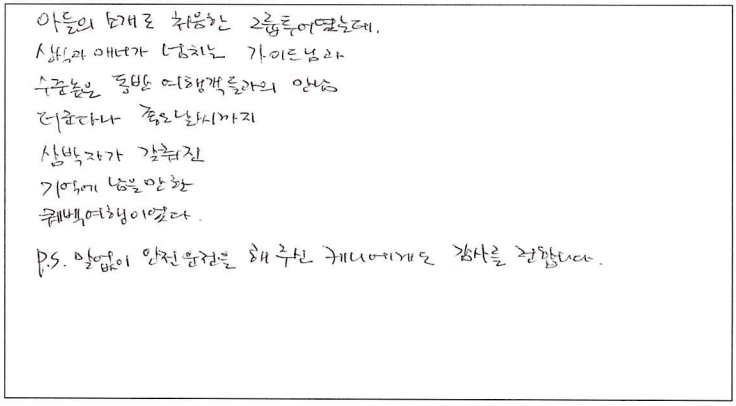 아들의 소개로 처음한 그룹투어였는데,
상식과 매너가 넘치는 가이드님과
수준높은 동반 여행객들과의 만남
더군다나 좋은날씨까지
삼박자가 갖춰진
기억에 남을만한
퀘백여행이였다.
P.S. 말없이 안전운전을 해주신 케니에게도 감사를 전합니다.